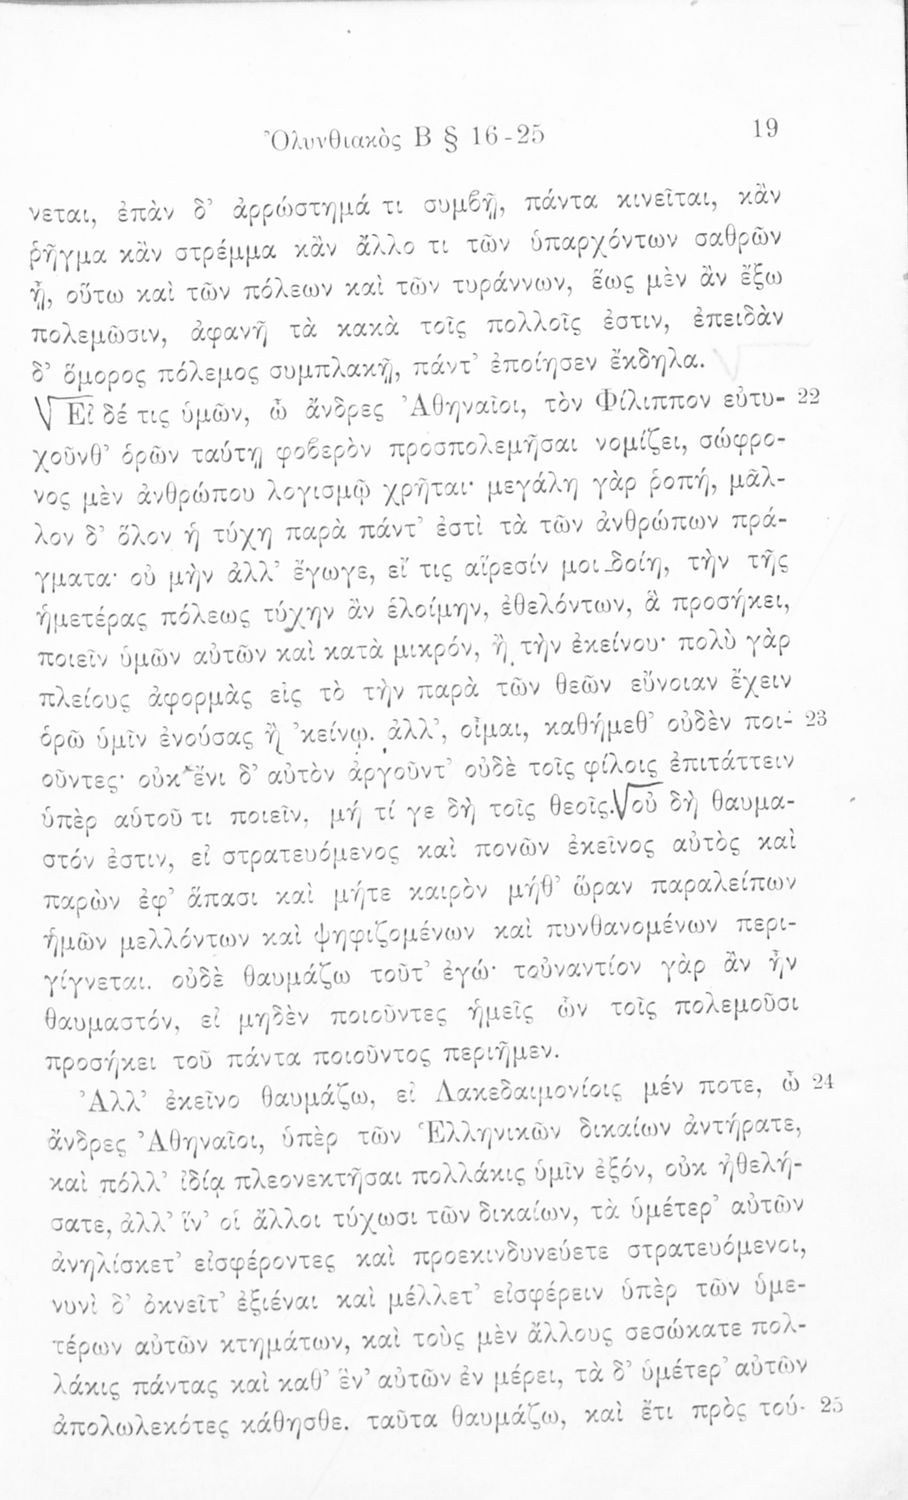 Ὀλυνθιακὸς Β § 16-25 19
νεται, ἐπὰν δ’ ἀρρώστημά τι συμβῇ, πάντα κινεῖται, κἂν
ῥῆγμα κἂν στρέμμα κἂν ἄλλο τι τῶν ὑπαρχόντων σαθρῶν
ᾖ, οὕτω καὶ τῶν πόλεων καὶ τῶν τυράννων, ἕως μὲν ἂν ἔξω
πολεμῶσιν, ἀφανῆ τὰ κακὰ τοῖς πολλοῖς ἐστιν, ἐπειδὰν
δ’ ὅμορος πόλεμος συμπλακῇ, πάντ’ ἐποίησεν ἔκδηλα.
Εἰ δέ τις ὑμῶν, ὦ ἄνδρες Ἀθηναῖοι, τὸν Φίλιππον εὐτυ- 22
χοῦνθ’ ὁρῶν ταύτῃ φοβερὸν προσπολεμῆσαι νομίζει, σώφρο-
νος μὲν ἀνθρώπου λογισμῷ χρῆται· μεγάλη γὰρ ῥοπή, μᾶλ-
λον δ’ ὅλον ἡ τύχη παρὰ πάντ’ ἐστὶ τὰ τῶν ἀνθρώπων πρά-
γματα· οὐ μὴν ἀλλ’ ἔγωγε, εἴ τις αἵρεσίν μοι δοίη, τὴν τῆς
ἡμετέρας πόλεως τύχην ἂν ἑλοίμην, ἐθελόντων, ἃ προσήκει,
ποιεῖν ὑμῶν αὐτῶν καὶ κατὰ μικρόν, ἢ τὴν ἐκείνου· πολὺ γὰρ
πλείους ἀφορμὰς εἰς τὸ τὴν παρὰ τῶν θεῶν εὔνοιαν ἔχειν
ὁρῶ ὑμῖν ἐνούσας ἢ ’κείνῳ. ἀλλ’, οἶμαι, καθήμεθ’ οὐδὲν ποι- 23
οῦντες· οὐκ ἔνι δ’ αὐτὸν ἀργοῦντ’ οὐδὲ τοῖς φίλοις ἐπιτάττειν
ὑπὲρ αὑτοῦ τι ποιεῖν, μή τί γε δὴ τοῖς θεοῖς. οὐ δὴ θαυμα-
στόν ἐστιν, εἰ στρατευόμενος καὶ πονῶν ἐκεῖνος αὐτὸς καὶ
παρὼν ἐφ’ ἅπασι καὶ μήτε καιρὸν μήθ’ ὥραν παραλείπων
ἡμῶν μελλόντων καὶ ψηφιζομένων καὶ πυνθανομένων περι-
γίγνεται. οὐδὲ θαυμάζω τοῦτ’ ἐγώ· τοὐναντίον γὰρ ἂν ἦν
θαυμαστόν, εἰ μηδὲν ποιοῦντες ἡμεῖς ὧν τοῖς πολεμοῦσι
προσήκει τοῦ πάντα ποιοῦντος περιῆμεν.
Ἀλλ’ ἐκεῖνο θαυμάζω, εἰ Λακεδαιμονίοις μέν ποτε, ὦ 24
ἄνδρες Ἀθηναῖοι, ὑπὲρ τῶν Ἑλληνικῶν δικαίων ἀντήρατε,
καὶ πόλλ’ ἰδίᾳ πλεονεκτῆσαι πολλάκις ὑμῖν ἐξόν, οὐκ ἠθελή-
σατε, ἀλλ’ ἵν’ οἱ ἄλλοι τύχωσι τῶν δικαίων, τὰ ὑμέτερ’ αὐτῶν
ἀνηλίσκετ’ εἰσφέροντες καὶ προεκινδυνεύετε στρατευόμενοι,
νυνὶ δ’ ὀκνεῖτ’ ἐξιέναι καὶ μέλλετ’ εἰσφέρειν ὑπὲρ τῶν ὑμε-
τέρων αὐτῶν κτημάτων, καὶ τοὺς μὲν ἄλλους σεσώκατε πολ-
λάκις πάντας καὶ καθ’ ἕν’ αὐτῶν ἐν μέρει, τὰ δ’ ὑμέτερ’ αὐτῶν
ἀπολωλεκότες κάθησθε. ταῦτα θαυμάζω, καὶ ἔτι πρὸς τού- 25